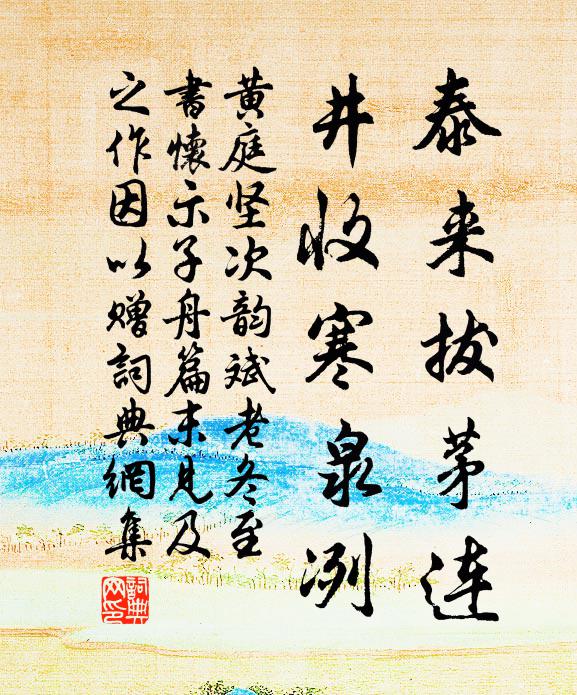 泰来拔茅連
井收寒泉冽
黄庭坚次韵斌老冬至
書懷示子舟篇末見及
之作因以赠詞典網集
詞典
网印